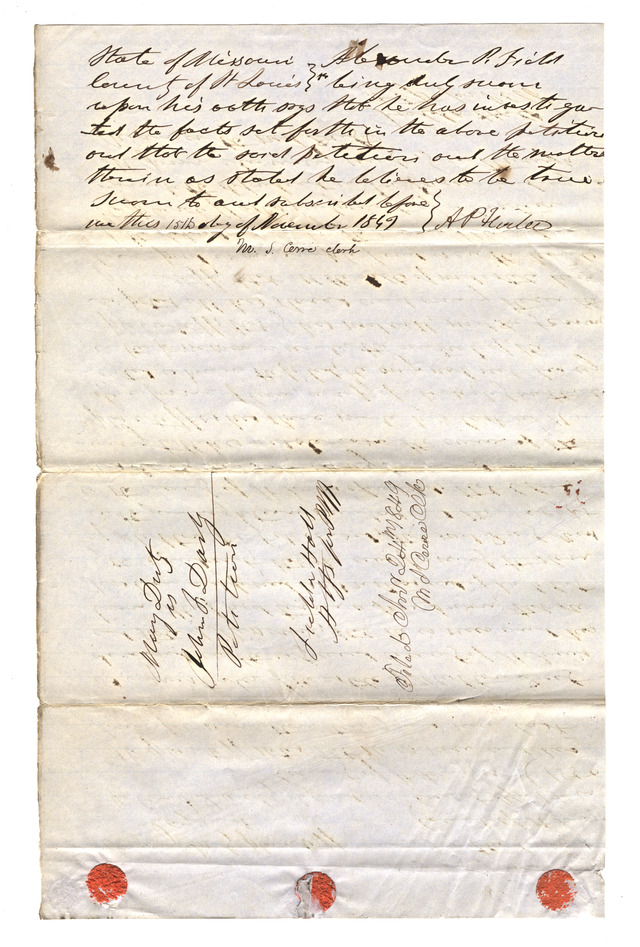 State of Missouri } Alexander P. Field
County of St Louis } ss being duly sworn
upon his oath says that he has investiga-
ted the facts set forth in the above petition
and that the said petition and the matters
therein as stated he believes to be true
Sworn to and subscribed before }
me this 15th day of November 1849 } A P Field
M. S. Cerre clerk
Mary
vs
John
Petition
Field & Hall
Attys for Plff
Filed Novr 24th 1849
M S Cerre Clk